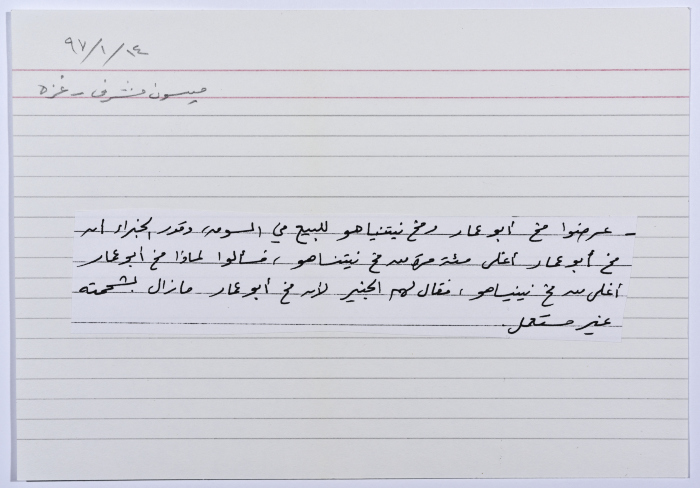 ٩٧/١/١٤
ميسون مشرف - غزة
- عرضوا مخ أبو عمار ومخ نيتنياهو للبيع في السوق، وقدر الخبراء أن
مخ أبو عمار أغلى مئة مرة من مخ نيتناهو، فسألوا لماذا مخ أبو عمار
أغلى من مخ نينياهو، فقال لهم الخبير لأن مخ أبو عمار مازال بشحمته
غير مستعمل.